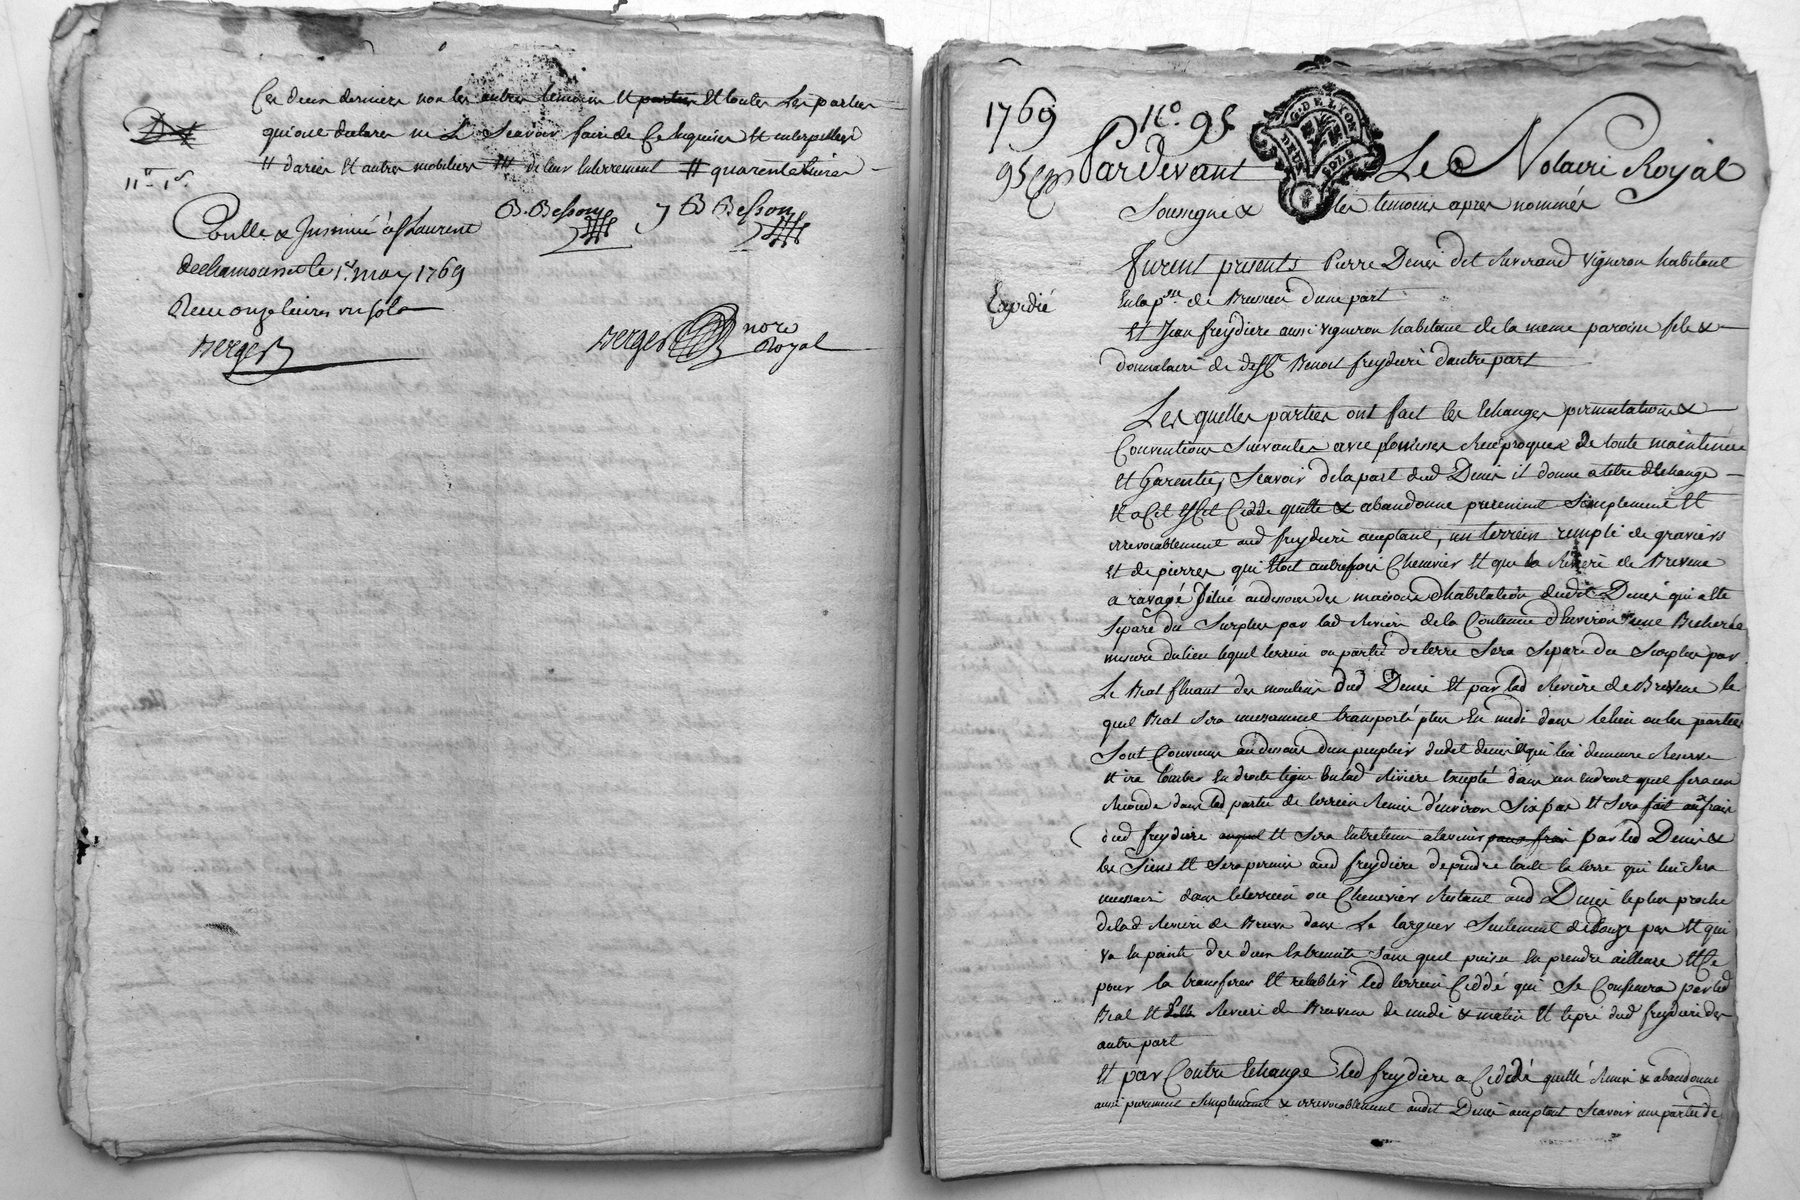 Ces deux derniers non les autres temoins et parties et toutes les parties
qui ont declarés ne le scavoir faire de ce enquises et interpellées
# daries et autres mobiliers # de leur enterrement # quarente livres
11# 1s.
B. Besson y B Besson
Conllé & Insinué à St Laurent
dechamousset le 1r. may 1769
Receu onze livres un sols
Berger
Berger nore
Royal
1769 No. 95
95
G. DE LYON
Pardevant Le Notaire Royal
Soussigné & les temoins apres nommés
Furent presents Pierre Denis dit Reverand vigneron habitant
Expedié
en la psse de Brussieu d'une part
et Jean freydiere aussi vigneron habitant de la meme paroisse fils &
donnataire de deft Benoit freydiere d'autre part
Les quelles parties ont fait les Echanges permutations &
Conventions suivantes avec promesses Reciproques de toute maintenüe
et Garentie, Scavoir de la part dud Denis il donne a titre d'Echange
et a cet effet Cedde quitte & abandonne purement simplement et
irrevocablement aud freydiere acceptant, un terrein rempli de graviers
et de pierres qui etoit autrefois Chenevier et que la Riviere de Brevene
a ravagé situé audessous des maisons d'habitation dudit Denis qui a ete
separé du Surplus par lad Riviere de la Contenue d'Environ une Bicherée
mesure du lieu lequel terrein ou partie de terre sera separé du Surplus par
Le Beal fluant des moulins dud Denis et par lad Riviere de Brevene le
quel Beal sera incessament transporté plus en midi dans le lieu ou les parties
sont Convenus au dessous d'un peuplier dudit denis qui lui demeure Reservé
et ira tomber en droite ligne en lad Riviere excepté dans un endroit quel fera un
Rcoude dans lad partie de terrein Remis d'environ six pas et sera fait aux frais
dud freydiere auquel et sera entretenu a l'avenir sans frais par led Denis &
les siens et sera permis aud freydiere de prendre toute la terre qui lui sera
necessaire dans le terrein ou Chenevier Restant aud Denis le plus proche
de lad Riviere de Breven dans La largeur seulement de douze pas et qui
va en pointe des deux extremités sans quil puisse en prendre ailleurs et Ce
pour la transferer et retablir led terrein Ceddé qui se Confinera par led
Beal et Riviere de Brevene de midi & matin et le pré dud freydiere des
autre part
Et par Contre Echange led freydiere a Ceddé quitté Remis & abandonné
aussi purement simplement & irrevocablement audit Denis acceptant Scavoir une partie de